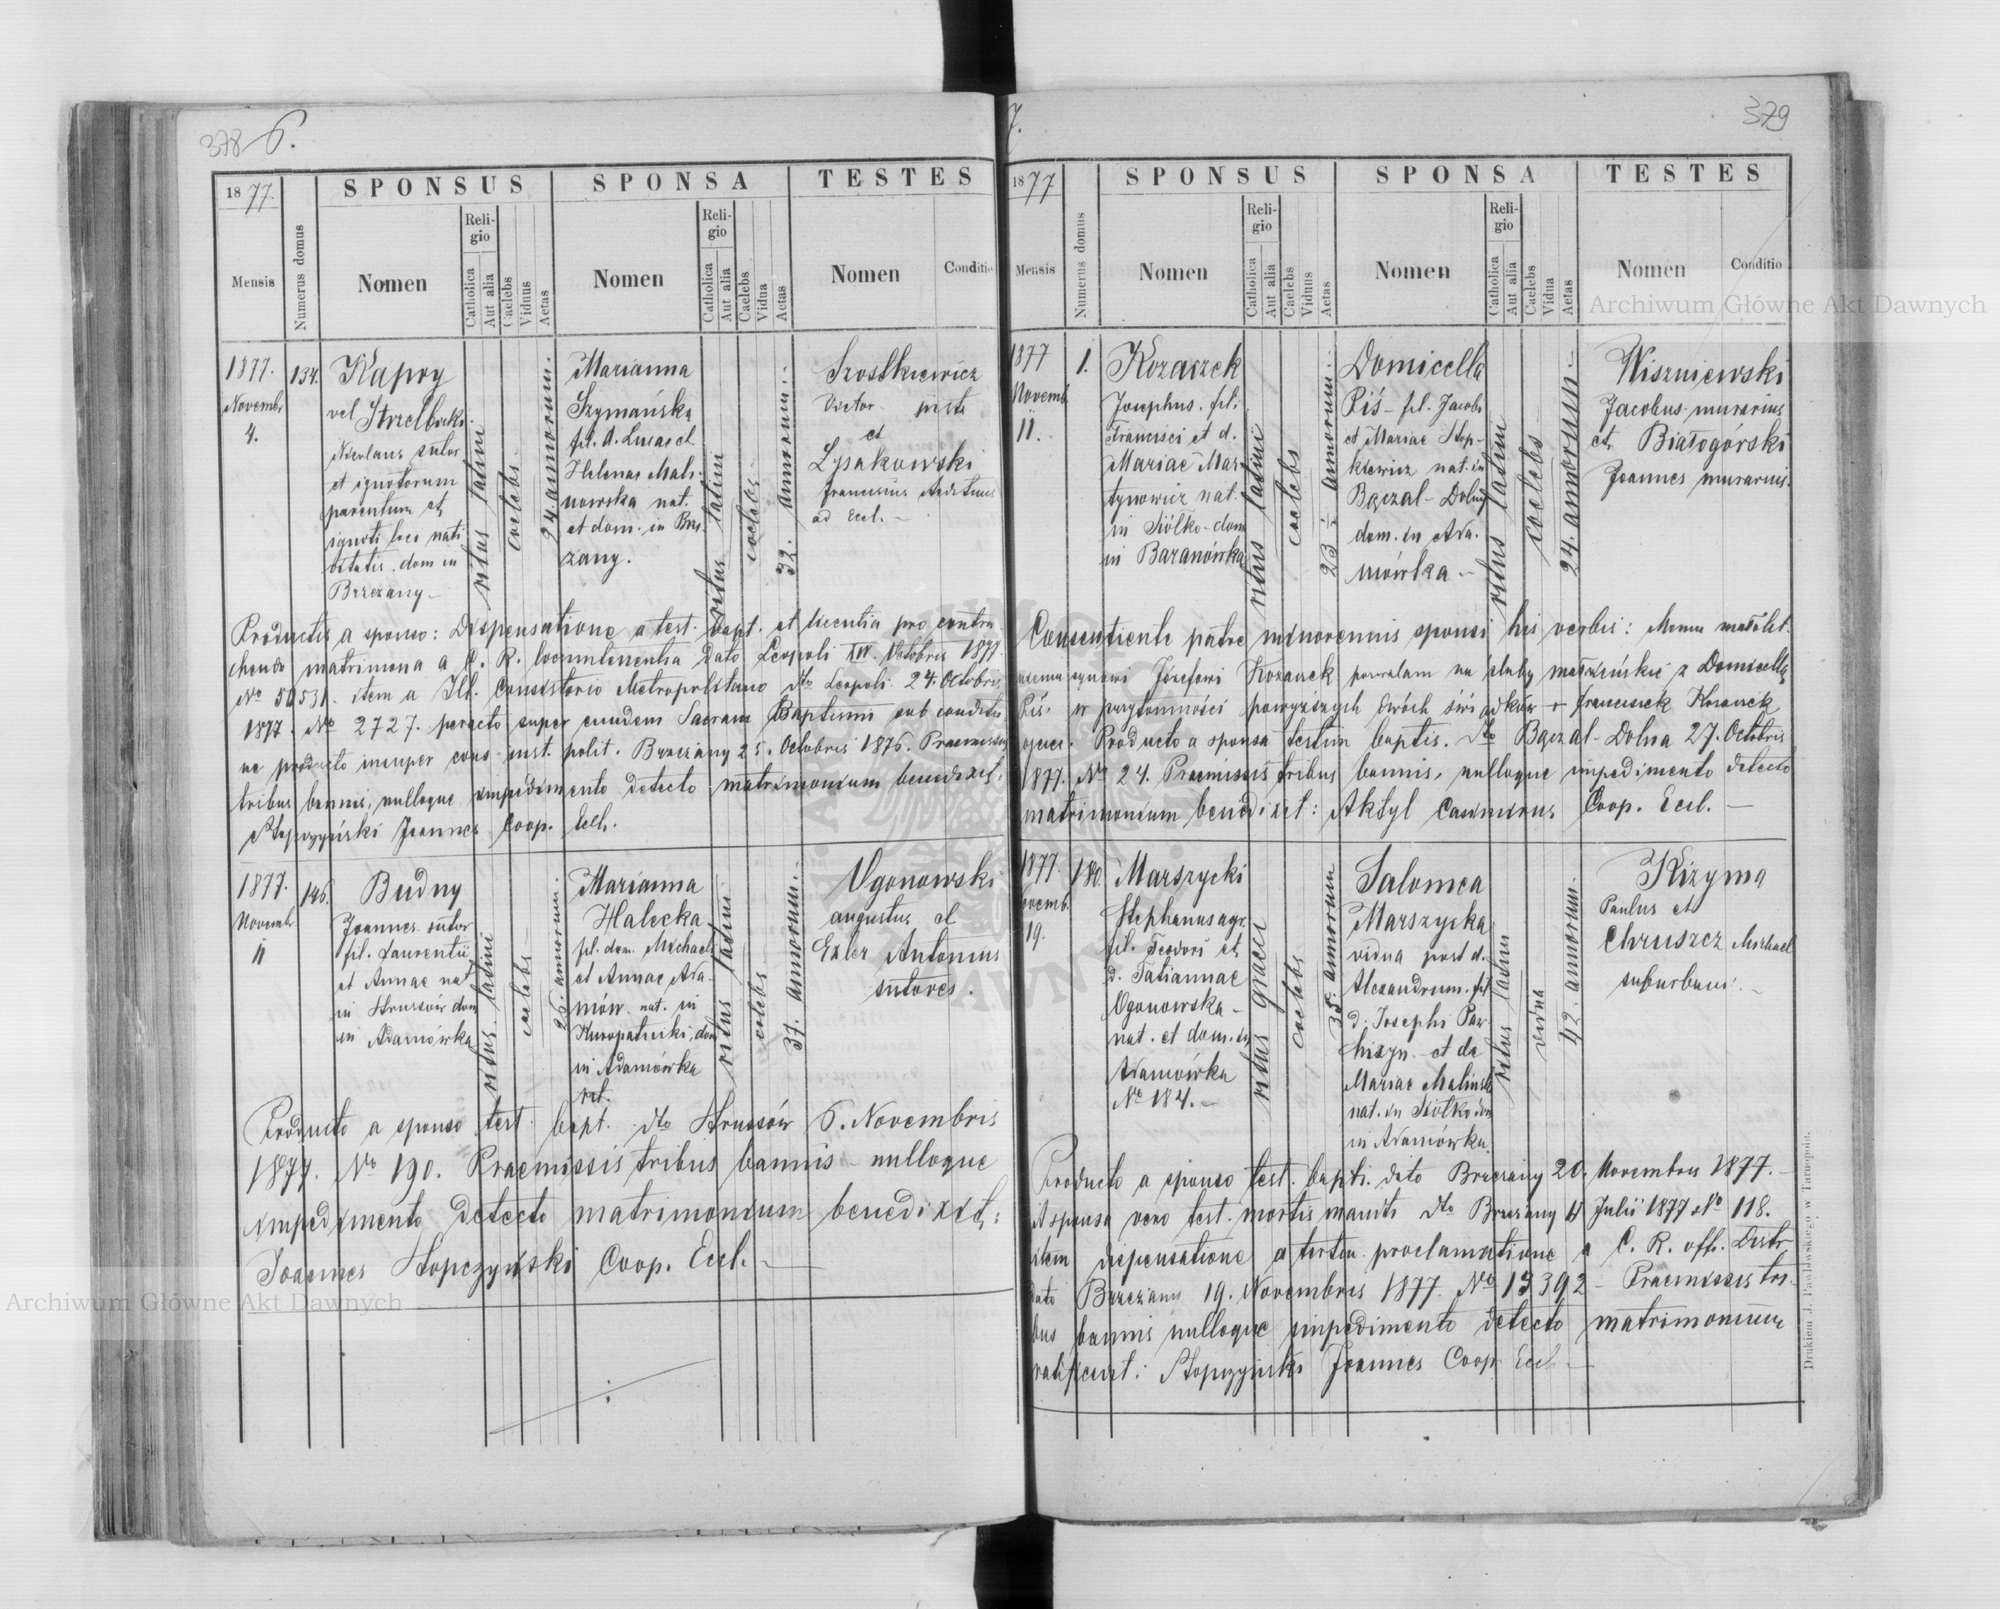 378 6.
1877.
Mensis
Numerus domus
SPONSUS
Nomen
Reli-
gio
Catholica
Aut alia
Caelebs
Viduus
Aetas
SPONSA
Nomen
Reli-
gio
Catholica
Aut alia
Caelebs
Vidua
Aetas
TESTES
Nomen
Conditio
1877.
Novembr
4.
134.
Kapry
vel Strzelbicki
Nicolaus sutor
et ignotorum
parentum et
ignoti loci nati
vitatis. dom in
Brzezany
ritus latini
caelebs
24 annorum.
Marianna
Szymańska
fil. d. Lucae et
Helenae Mali-
nowska nat.
et dom. in Brze-
zany.
ritus latini
caelebs
32. annorum
Szostkiewicz
Victor
et
Lysakowski
Franciscus Aedituus
ad Eccl.
Producto a sponso: Dispensatione a test. bapt. et licentia pro contra
hendo matrimonio a C. R. Locumtenentia dato Leopoli Octobris 1877
No 50531. item a Ill. Consistorio Metropolitano dto Leopoli 24. Octobris
1877. No 2727. peracto super eundem Sacram Baptismi sub conditio
ne producto insuper cons. inst. polit. Brzeżany 25. Octobris 1876. Praemissis
tribus bannis, nulloque impedimento detecto matrimonium benedixit:
Stopczyński Joannes Coop. Eccl.
1877.
Novembr
11
146.
Budny
Joannes sutor
fil. Laurentii
et Annae nat
in Hrussów dom
in Adamówka
ritus latini
caelebs
26. annorum.
Marianna
Halecka
fil. dom. Michaeli
et Annae Ada-
mów nat. in
Kuropatniki, dom
in Adamówka
rit.
ritus latini
caelebs
37. annorum.
Ogonowski
Augustus et
Exler Antonius
sutores.
Producto a sponso test. bapt. dto Hrussów 6. Novembris
1877. No 190. Praemissis tribus bannis nulloque
impedimento detecto matrimonium benedixit:
Joannes Stopczyński Coop. Eccl.
7. 379
1877
Mensis
Numerus domus
SPONSUS
Nomen
Reli-
gio
Catholica
Aut alia
Caelebs
Viduus
Aetas
SPONSA
Nomen
Reli-
gio
Catholica
Aut alia
Caelebs
Vidua
Aetas
TESTES
Nomen
Conditio
1877
Novemb.
11.
1.
Kozaczek
Josephus. fil.
Francisci et d.
Mariae Mar-
tynowicz nat.
in Kólko dom
in Baranówka
ritus latini
caelebs
23 annorum.
Domicella
Piś fil. Jacobi
et Mariae Stop-
kiewicz nat. in
Bączal-Dolny
dom. in Ada-
mówka
ritus latini
caelebs
24. annorum.
Wiszniewski
Jacobus murarius
et Białogórski
Joannes murarius.
Consentiente patre minorennis sponsi his verbis: Memu małolet-
niemu synowi Józefowi Kozaczek pozwalam na śluby małżeńskie z Domicellą
Piś. w przytomności powyższych dwóch świadków + Franciszek Kozaczek
ojciec. Producto a sponsa testim baptis. dto Bączal-Dolna 27. Octobris
1877. No 24. Praemissis tribus bannis, nulloque impedimento detecto
matrimonium benedixit: Aktyl Casimirus Coop. Eccl.
1877.
Novemb.
19.
180
Marszycki
Stephanus agr.
fil. Teodori et
d. Tatiannae
Ogonowska
nat. et dom. in
Adamówka
No 184.
ritus graeci
caelebs
35. annorum
Salomea
Marszycka
vidua post d.
Alexandrum. fil
d. Josephi Paw-
hiszyn et de
Mariae Malinsk
nat. in Kólko dom
in Adamówka.
ritus latini
vidua
42. annorum.
Kizyma
Paulus et
Chruszcz Michael
suburbani.
Producto a sponso test. bapti. dato Brzezany 20. Novembris 1877.
A sponsa vero test. mortis mariti dto Brzezany 11 Julii 1877 No 118.
item dispensatione a tertia proclamatione a C. R. off. Distr
dato Brzezany 19. Novembris 1877. No 13392 Praemissis tri-
bus bannis nulloque impedimento detecto matrimonium
ratificavit: Stopczyński Joannes Coop Eccl.
Drukiem J. Pawłowskiego w Tarnopolu.
Archiwum Główne Akt Dawnych
Archiwum Główne Akt Dawnych